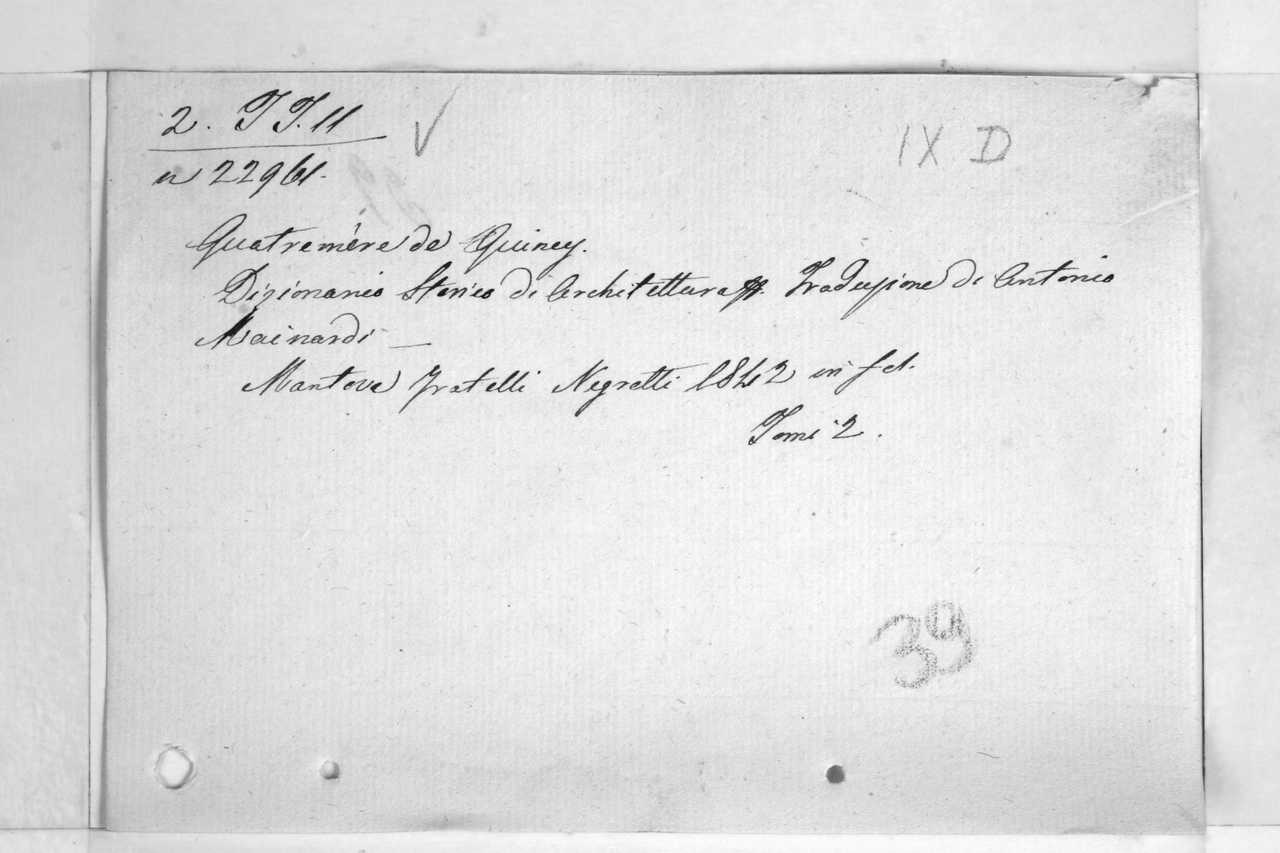 2. TT. 11
IX D
n 22961.
Quatremère de Quincy.
Dizionario Storico di Architettura Traduzione di Antonio
Mainardi —
Mantova Fratelli Negretti 1842 in fol.
Tomi 2.
39